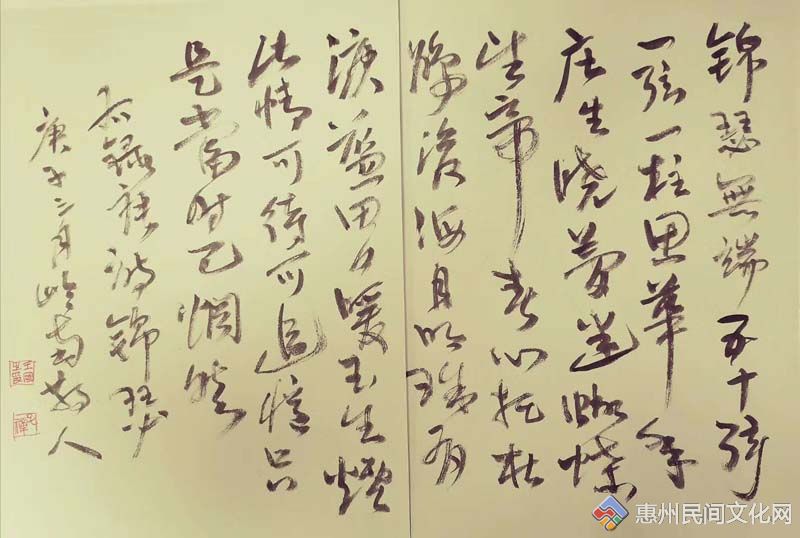 锦瑟無端五十弦
一弦一柱思華年
庄生晓夢迷蝴蝶
望帝春心托杜
鹃滄海月明珠有
淚蓝田日暖玉生煙
此情可待可追憶只
是當时已惘然
右録锦瑟
庚子三月岭南散人
惠州民间文化网